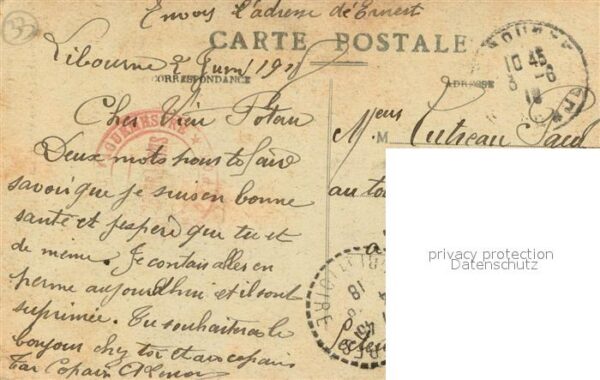 Envoy l'adresse de Ernest
CARTE POSTALE
Libourne 2 Juin 1918
CORRESPONDANCE
ADRESSE
Cher Vieu Poteau
Deux mots pour te faire
savoir que je suis en bonne
santé et j'espère que tu et
de meme. Je contais aller en
perme aujourdhui et il sont
suprimée. Tu souhaiteras le
bonjour chez toi et aux copains
Ton Copain
M
au
privacy protection
Datenschutz
LOIRE